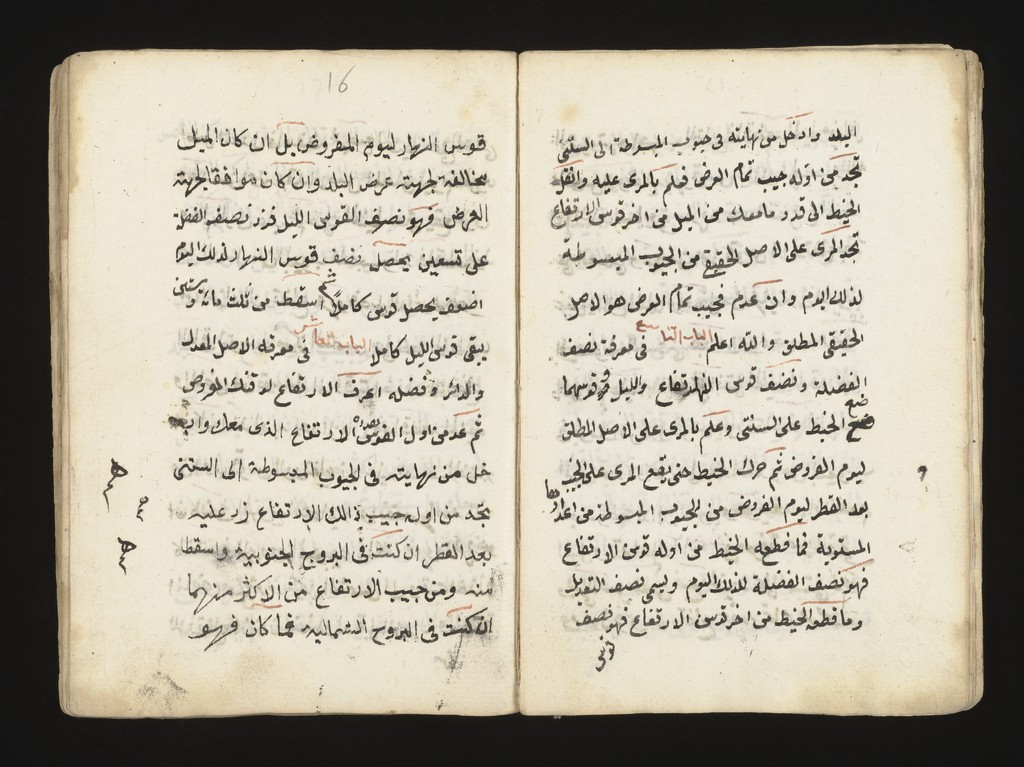 البلد وادخل من نهايته فى جيوب المبسوطة الى الستنى
تجد من اوله جيب تمام العرض فعلم بالمرى عليه وانقل
الخيط الى قدر مامعك من الميل من اخر قوس الارتفاع
تجد المرى على الاصل الحقيقى من الجيوب المبسوطة
لذلك اليوم وان عدم فجيب تمام العرض هو الاصل
الحقيقى المطلق والله اعلم الباب التاسع فى معرفة نصف
الفضلة ونصف قوس النهار والليل وقوسهما
ضع الخيط على الستنى وعلم بالمرى على الاصل المطلق
ليوم الفروض ثم حرك الخيط حتى يقع المرى على الجيب
بعد القطر ليوم الفروض من الجيوب المبسوطة من اعدادها
المستوية فما قطعه الخيط من اوله قوس الارتفاع
فهو نصف الفضلة لذلك اليوم ويسمى نصف التعديل
وما قطع الخيط من اخر قوس الارتفاع فهو نصف
قوس
16
قوس النهار ليوم المفروض بل ان كان الميل
مخالفة لجهته عرض البلد وان كان موافقا لجهته
العرض فهو نصف القوس الليل فزد نصف الفضلة
على تسعين يحصل نصف قوس النهار لذلك اليوم
اضعف يحصل قوس كاملا ثم اسقط من ثلث مائة وستين
يبقى قوس الليل كاملا الباب العاشر فى معرفة الاصل المعدل
والدائر وفضله اعرف الارتفاع لوقتك المفروض
ثم عد من اول القوس بعده الارتفاع الذى معك واد
خل من نهايته فى الجيوب المبسوطة الى الستنى
تجد من اول جيب ذالك الارتفاع زد عليه
بعد القطر ان كنت فى البروج الجنوبية واسقط
منه ومن جيب الارتفاع من الاكثر منهما
ان كنت فى البروج الشمالية فما كان فهو